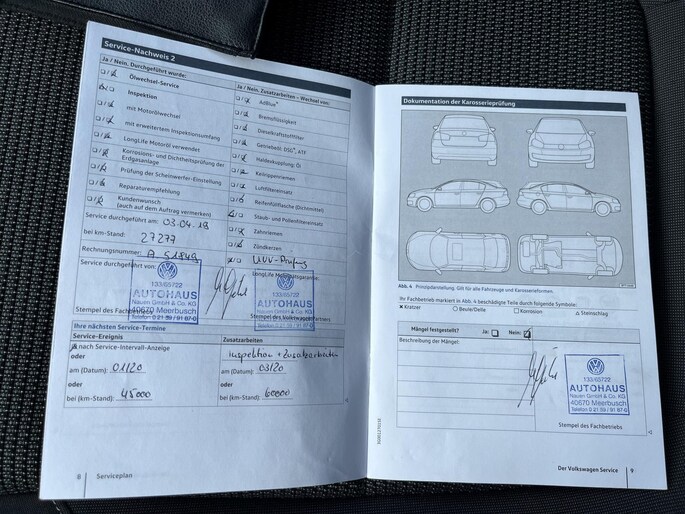 Service-Nachweis 2
Ja / Nein. Durchgeführt wurde:
Ölwechsel-Service
Inspektion
mit Motorölwechsel
mit erweitertem Inspektionsumfang
LongLife Motoröl verwendet
Korrosions- und Dichtheitsprüfung der
Erdgasanlage
Prüfung der Scheinwerfer-Einstellung
Reparaturempfehlung
Kundenwunsch
(auch auf dem Auftrag vermerken)
Service durchgeführt am: 03-04.18
bei km-Stand: 27277
Rechnungsnummer:
Service durchgeführt von:
133/65722
AUTOHAUS
Nauen GmbH & Co. KG
40670 Meerbusch
Telefon 0 21 59 / 91 87-0
Stempel des Fachbetriebs
Ja / Nein. Zusatzarbeiten – Wechsel von:
AdBlue®
Bremsflüssigkeit
Dieselkraftstofffilter
Getriebeöl: DSG®, ATF
Haldexkupplung: Öl
Keilrippenriemen
Luftfiltereinsatz
Reifenfüllflasche (Dichtmittel)
Staub- und Pollenfiltereinsatz
Zahnriemen
Zündkerzen
UVV-Prüfung
LongLife Mobilitätsgarantie:
133/65722
AUTOHAUS
Nauen GmbH & Co. KG
40670 Meerbusch
Telefon 0 21 59 / 91 87-0
Stempel des Volkswagen Partners
Ihre nächsten Service-Termine
Service-Ereignis
nach Service-Intervall-Anzeige
oder
am (Datum): 01/20
oder
bei (km-Stand): 45000
Zusatzarbeiten
Inspektion + Zusatzarbeiten
am (Datum): 03/20
oder
bei (km-Stand): 60000
8 Serviceplan
Dokumentation der Karosserieprüfung
Abb. 4 Prinzipdarstellung. Gilt für alle Fahrzeuge und Karosserieformen.
Ihr Fachbetrieb markiert in Abb. 4 beschädigte Teile durch folgende Symbole:
× Kratzer ○ Beule/Delle □ Korrosion △ Steinschlag
Mängel festgestellt? Ja: Nein:
Beschreibung der Mängel:
133/65722
AUTOHAUS
Nauen GmbH & Co. KG
40670 Meerbusch
Telefon 0 21 59 / 91 87-0
Stempel des Fachbetriebs
Der Volkswagen Service 9